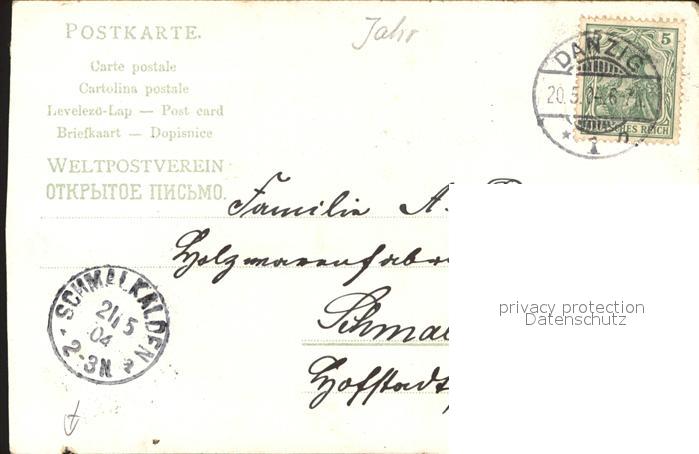 POSTKARTE.
Carte postale
Cartolina postale
Levelező-Lap — Post card
Briefkaart — Dopisnice
WELTPOSTVEREIN
ОТКРЫТОЕ ПИСЬМО.
Jahr
5
DANZIG
20.5.04.6-7
1 n.
SCHES REICH
Familie A.
Holzwarenfabr
Schmal
Hofstadt
SCHMALKALDEN
21/5
04
2-3N
privacy protection
Datenschutz